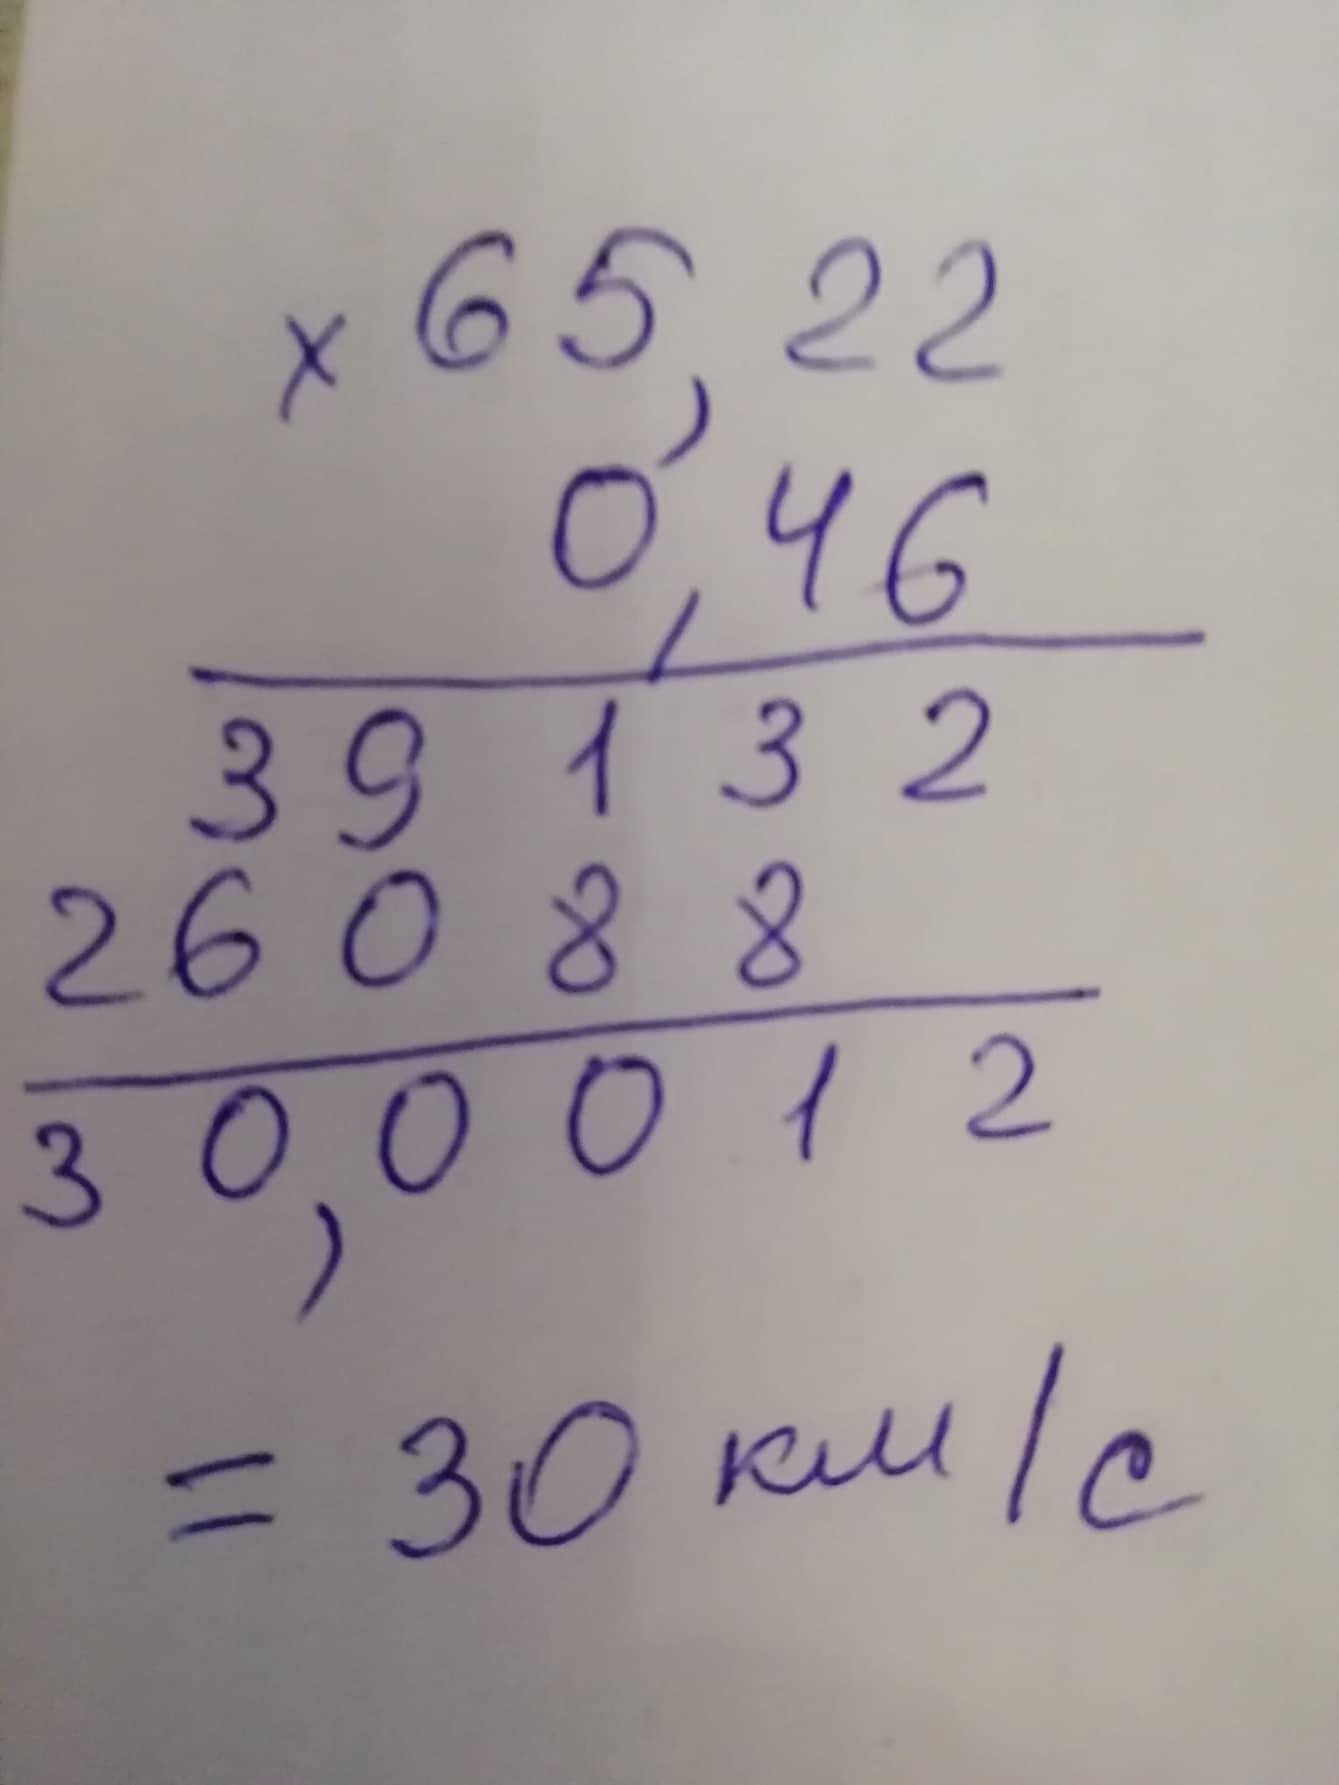 × 65,22
0,46
39132
26088
30,0012
= 30 км/с